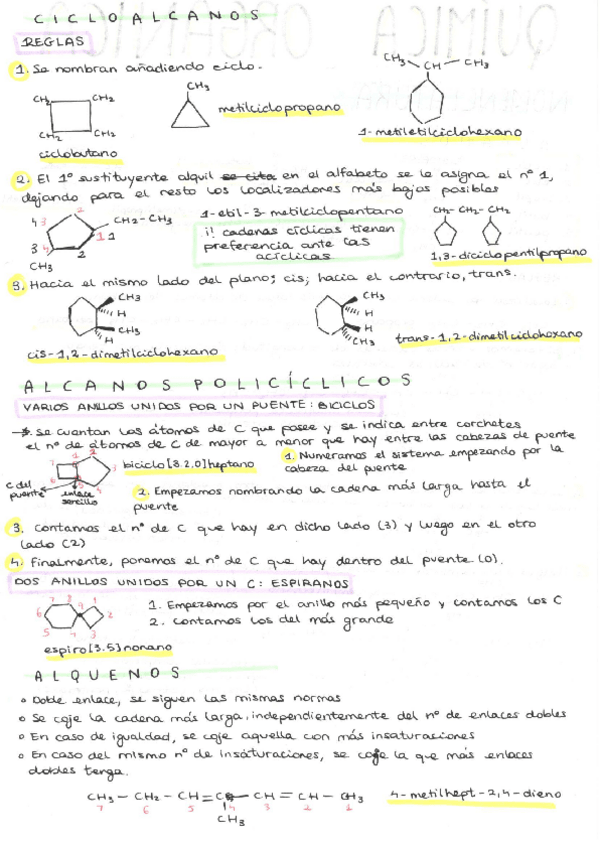 CICLOALCANOS
REGLAS
1. Se nombran añadiendo ciclo.
CH₂ CH₂
CH₂ CH₂
ciclobutano
CH₃
metilciclopropano
CH₃ - CH - CH₃
1-metiletilciclohexano
2. El 1º sustituyente alquil se cita en el alfabeto se le asigna el nº 1,
dejando para el resto los localizadores más bajos posibles
CH₂-CH₃
CH₃
1-etil-3-metilciclopentano
¡! cadenas cíclicas tienen
preferencia ante las
acíclicas
CH₂-CH₂-CH₂
1,3-diciclopentilpropano
3. Hacia el mismo lado del plano; cis; hacia el contrario, trans.
CH₃
H
CH₃
H
cis-1,2-dimetilciclohexano
CH₃
H
H
CH₃
trans-1,2-dimetilciclohexano
ALCANOS POLICÍCLICOS
VARIOS ANILLOS UNIDOS POR UN PUENTE: BICICLOS
→ Se cuentan los átomos de C que posee y se indica entre corchetes
el nº de átomos de C de mayor a menor que hay entre las cabezas de puente
biciclo[3.2.0]heptano
C del
puente
enlace
sencillo
1. Numeramos el sistema empezando por la
cabeza del puente
2. Empezamos nombrando la cadena más larga hasta el
puente
3. Contamos el nº de C que hay en dicho lado (3) y luego en el otro
lado (2)
4. Finalmente, ponemos el nº de C que hay dentro del puente (0).
DOS ANILLOS UNIDOS POR UN C: ESPIRANOS
1. Empezamos por el anillo más pequeño y contamos los C
2. Contamos los del más grande
espiro[3.5]nonano
ALQUENOS
Doble enlace, se siguen las mismas normas
Se coje la cadena más larga, independientemente del nº de enlaces dobles
En caso de igualdad, se coje aquella con más insaturaciones
En caso del mismo nº de insaturaciones, se coje la que más enlaces
dobles tenga.
CH₃ - CH₂ - CH = C - CH = CH - CH₃
7 6 5 4 3 2 1
CH₃
4-metilhept-2,4-dieno